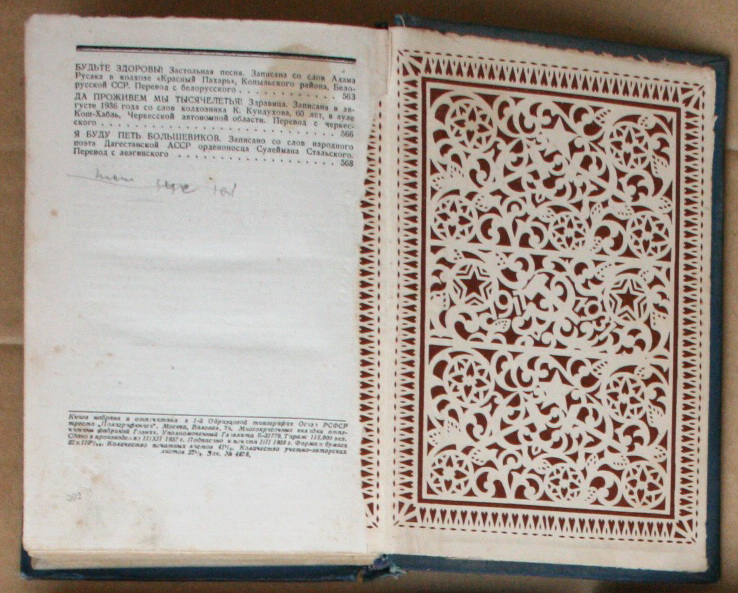 БУДЬТЕ ЗДОРОВЫ! Застольная песня. Записана со слов Адама
Русака в колхозе «Красный Пахарь», Копыльского района, Бело-
русской ССР. Перевод с белорусского . . . . . . . . . . . . 563
ДА ПРОЖИВЕМ МЫ ТЫСЯЧЕЛЕТЬЯ! Здравица. Записана в ав-
густе 1936 года со слов колхозника К. Кундухова, 60 лет, в ауле
Кош-Хабль, Черкесской автономной области. Перевод с черкес-
ского . . . . . . . . . . . . . . . . . . . . . . . . 566
Я БУДУ ПЕТЬ БОЛЬШЕВИКОВ. Записано со слов народного
поэта Дагестанской АССР орденоносца Сулеймана Стальского.
Перевод с лезгинского . . . . . . . . . . . . . . . . . 568
Книга набрана и отпечатана в 1-й Образцовой типографии Огиза РСФСР
треста „Полиграфкнига“, Москва, Валовая, 28. Многокрасочные вклейки отпе-
чатаны фабрикой Гознак. Уполномоченный Главлита Тираж
Сдано в производство 1937 г. Подписано к печати 1938 г. Формат бумаги
Количество печатных листов Количество учетно-авторских
листов Зак. №
19 37